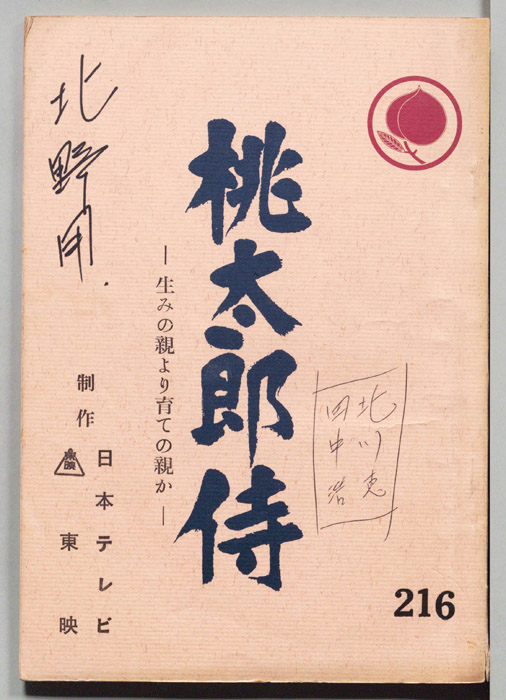 桃太郎侍
―生みの親より育ての親か―
北川恵
田中浩
北野用.
制作
日本テレビ
東映
216